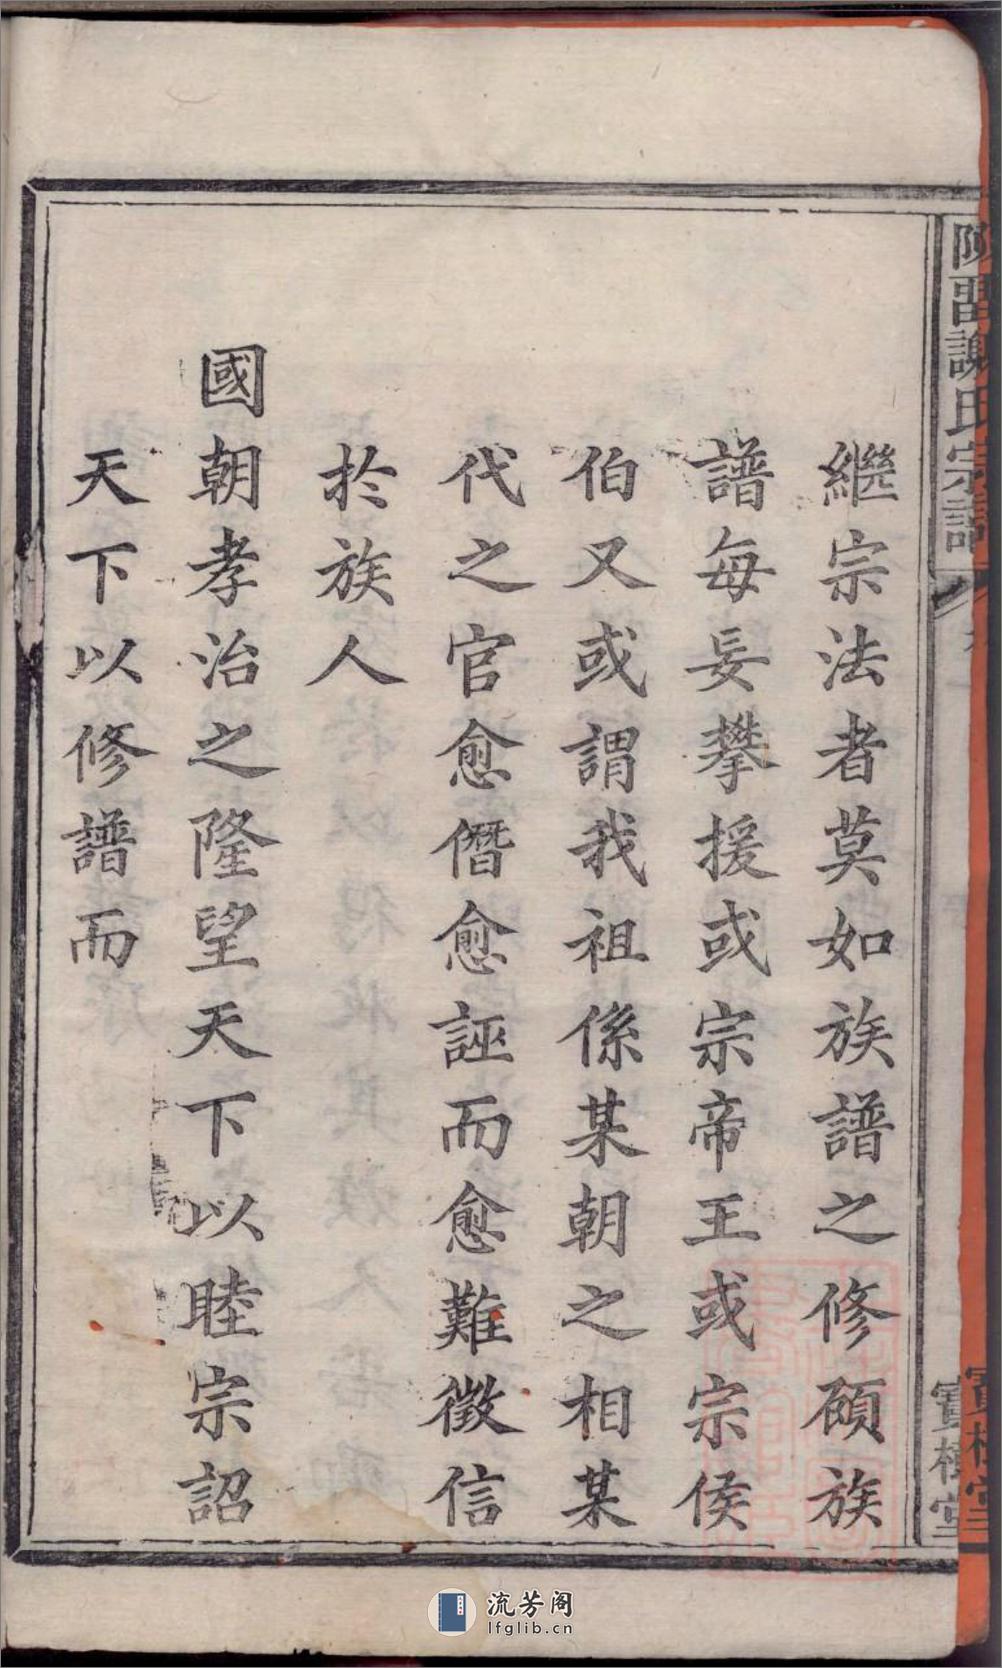 繼宗法者莫如族譜之修顧族
譜每妄攀援或宗帝王或宗侯
伯又或謂我祖係某朝之相某
代之官愈僭愈誣而愈難徵信
於族人
國朝孝治之隆望天下以睦宗詔
天下以修譜而
謝氏宗譜
寶樹堂
寶樹堂
流芳阁
lfglib.cn